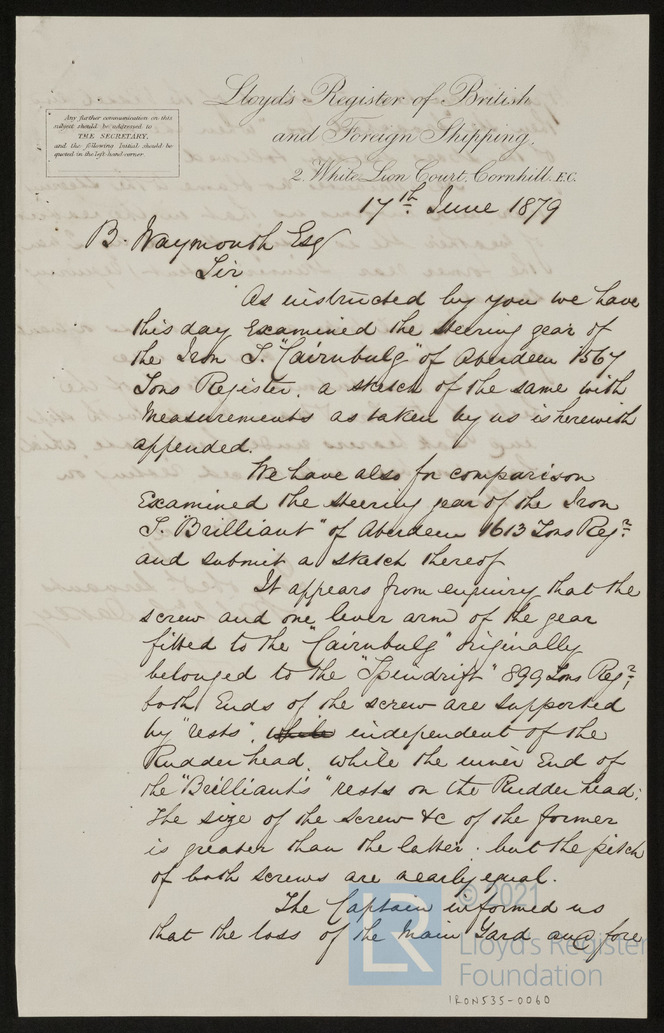 Lloyd's Register of British
and Foreign Shipping.
2, White Lion Court, Cornhill, E.C.
Any further communication on this
subject should be addressed to
THE SECRETARY,
and the following Initial should be
quoted in the left hand corner.
17th June 1879
B. Waymouth Esq
Sir
As instructed by you we have
this day Examined the steering gear of
the Iron S. "Cairnbulg" of Aberdeen 1567
Tons Register. a sketch of the same with
Measurements as taken by us is herewith
appended.
We have also for comparison
Examined the steering gear of the Iron
S. "Brilliant" of Aberdeen 1613 Tons Regr.
and submit a sketch thereof
It appears from enquiry that the
screw and one lever arm of the gear
fitted to the "Cairnbulg" originally
belonged to the "Spindrift" 899 Tons Regr.,
both Ends of the screw are supported
by "rests", while independent of the
Rudder head, while the inner End of
the "Brilliant's" rests on the Rudder head;
The size of the screw &c of the former
is greater than the latter. but the pitch
of both screws are nearly equal.
The Captain informed us
that the loss of the Main Yard and fore
© 2021
LR
Lloyd's Register
Foundation
IRON535-0060